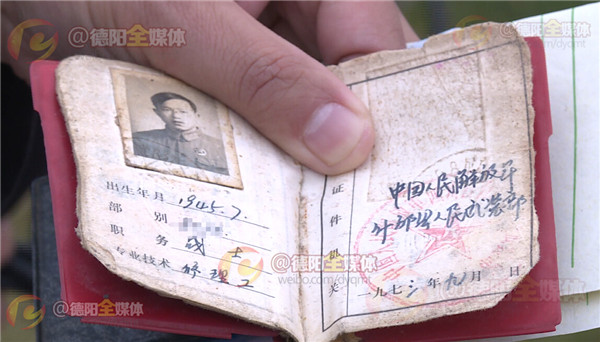 @德阳全媒体
@德阳全媒体
weibo.com/dyqmt
出生年月 1945.7.
部别
职务 战士
专业技术 修理工
证件机关
中国人民解放军
人民武装部
一九七三年九月 日
@德阳全媒体
weibo.com/dyqmt
@德阳全媒体
@德阳全媒体